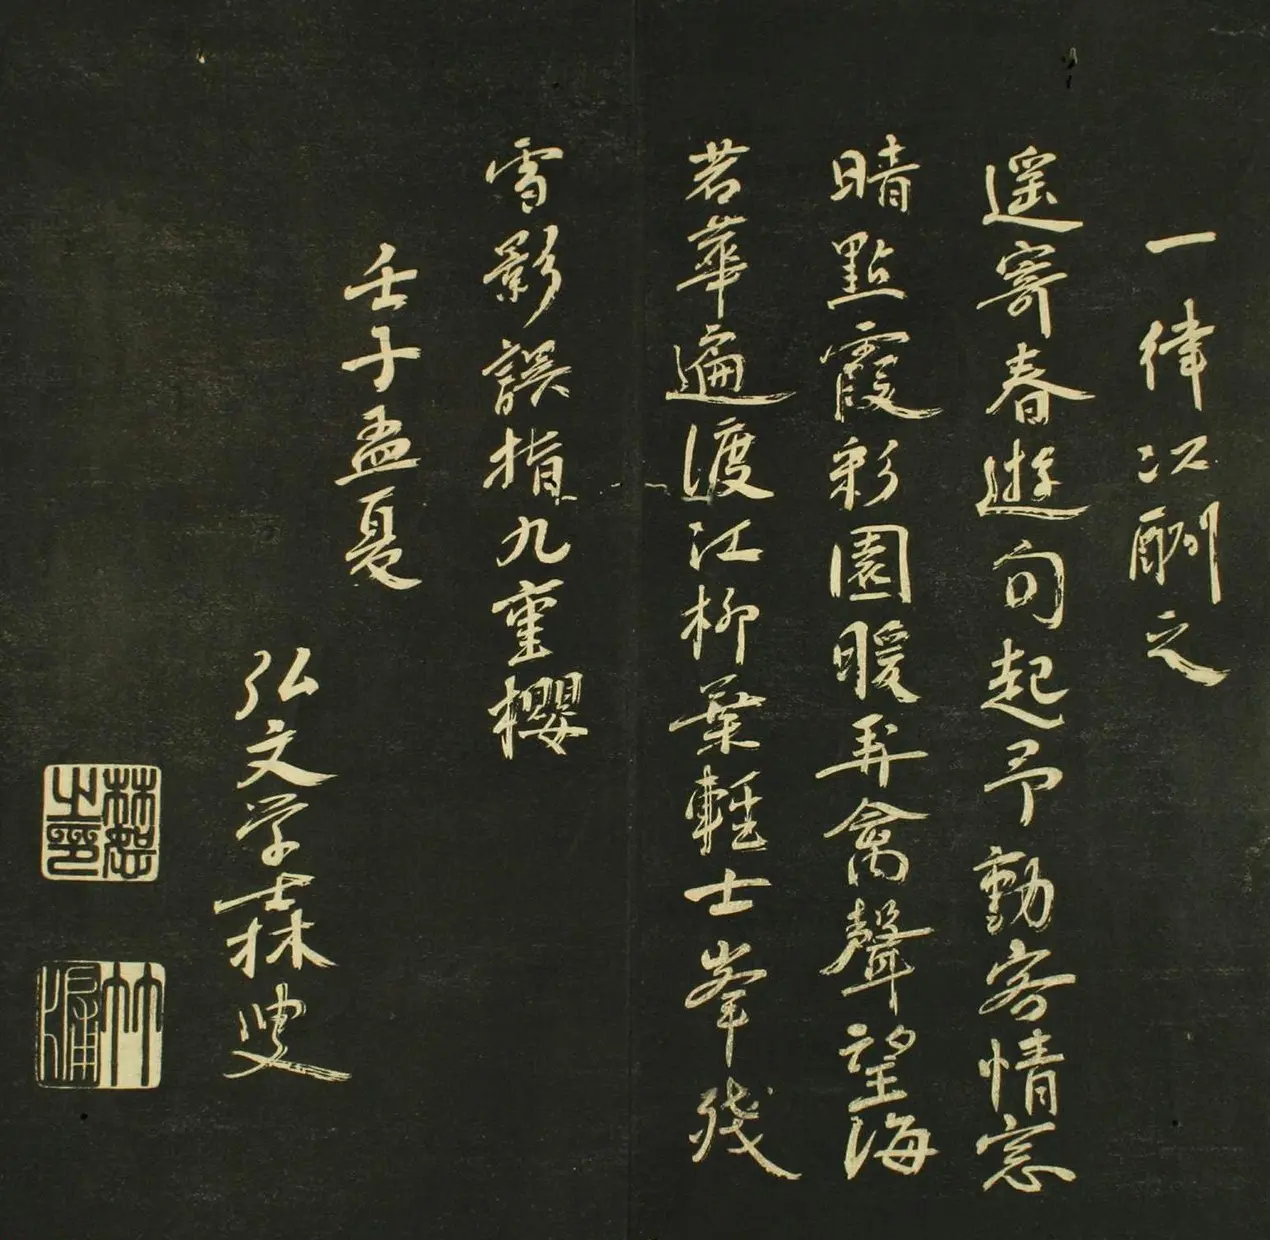 一律次酬之
遥寄春遊句起予動客情窓
晴點霞彩園暖弄禽聲望海
若華遍渡江柳葉輕士峯殘
雪影誤指九重櫻
壬子孟夏
弘文学士林叟
林恕之印
竹牖